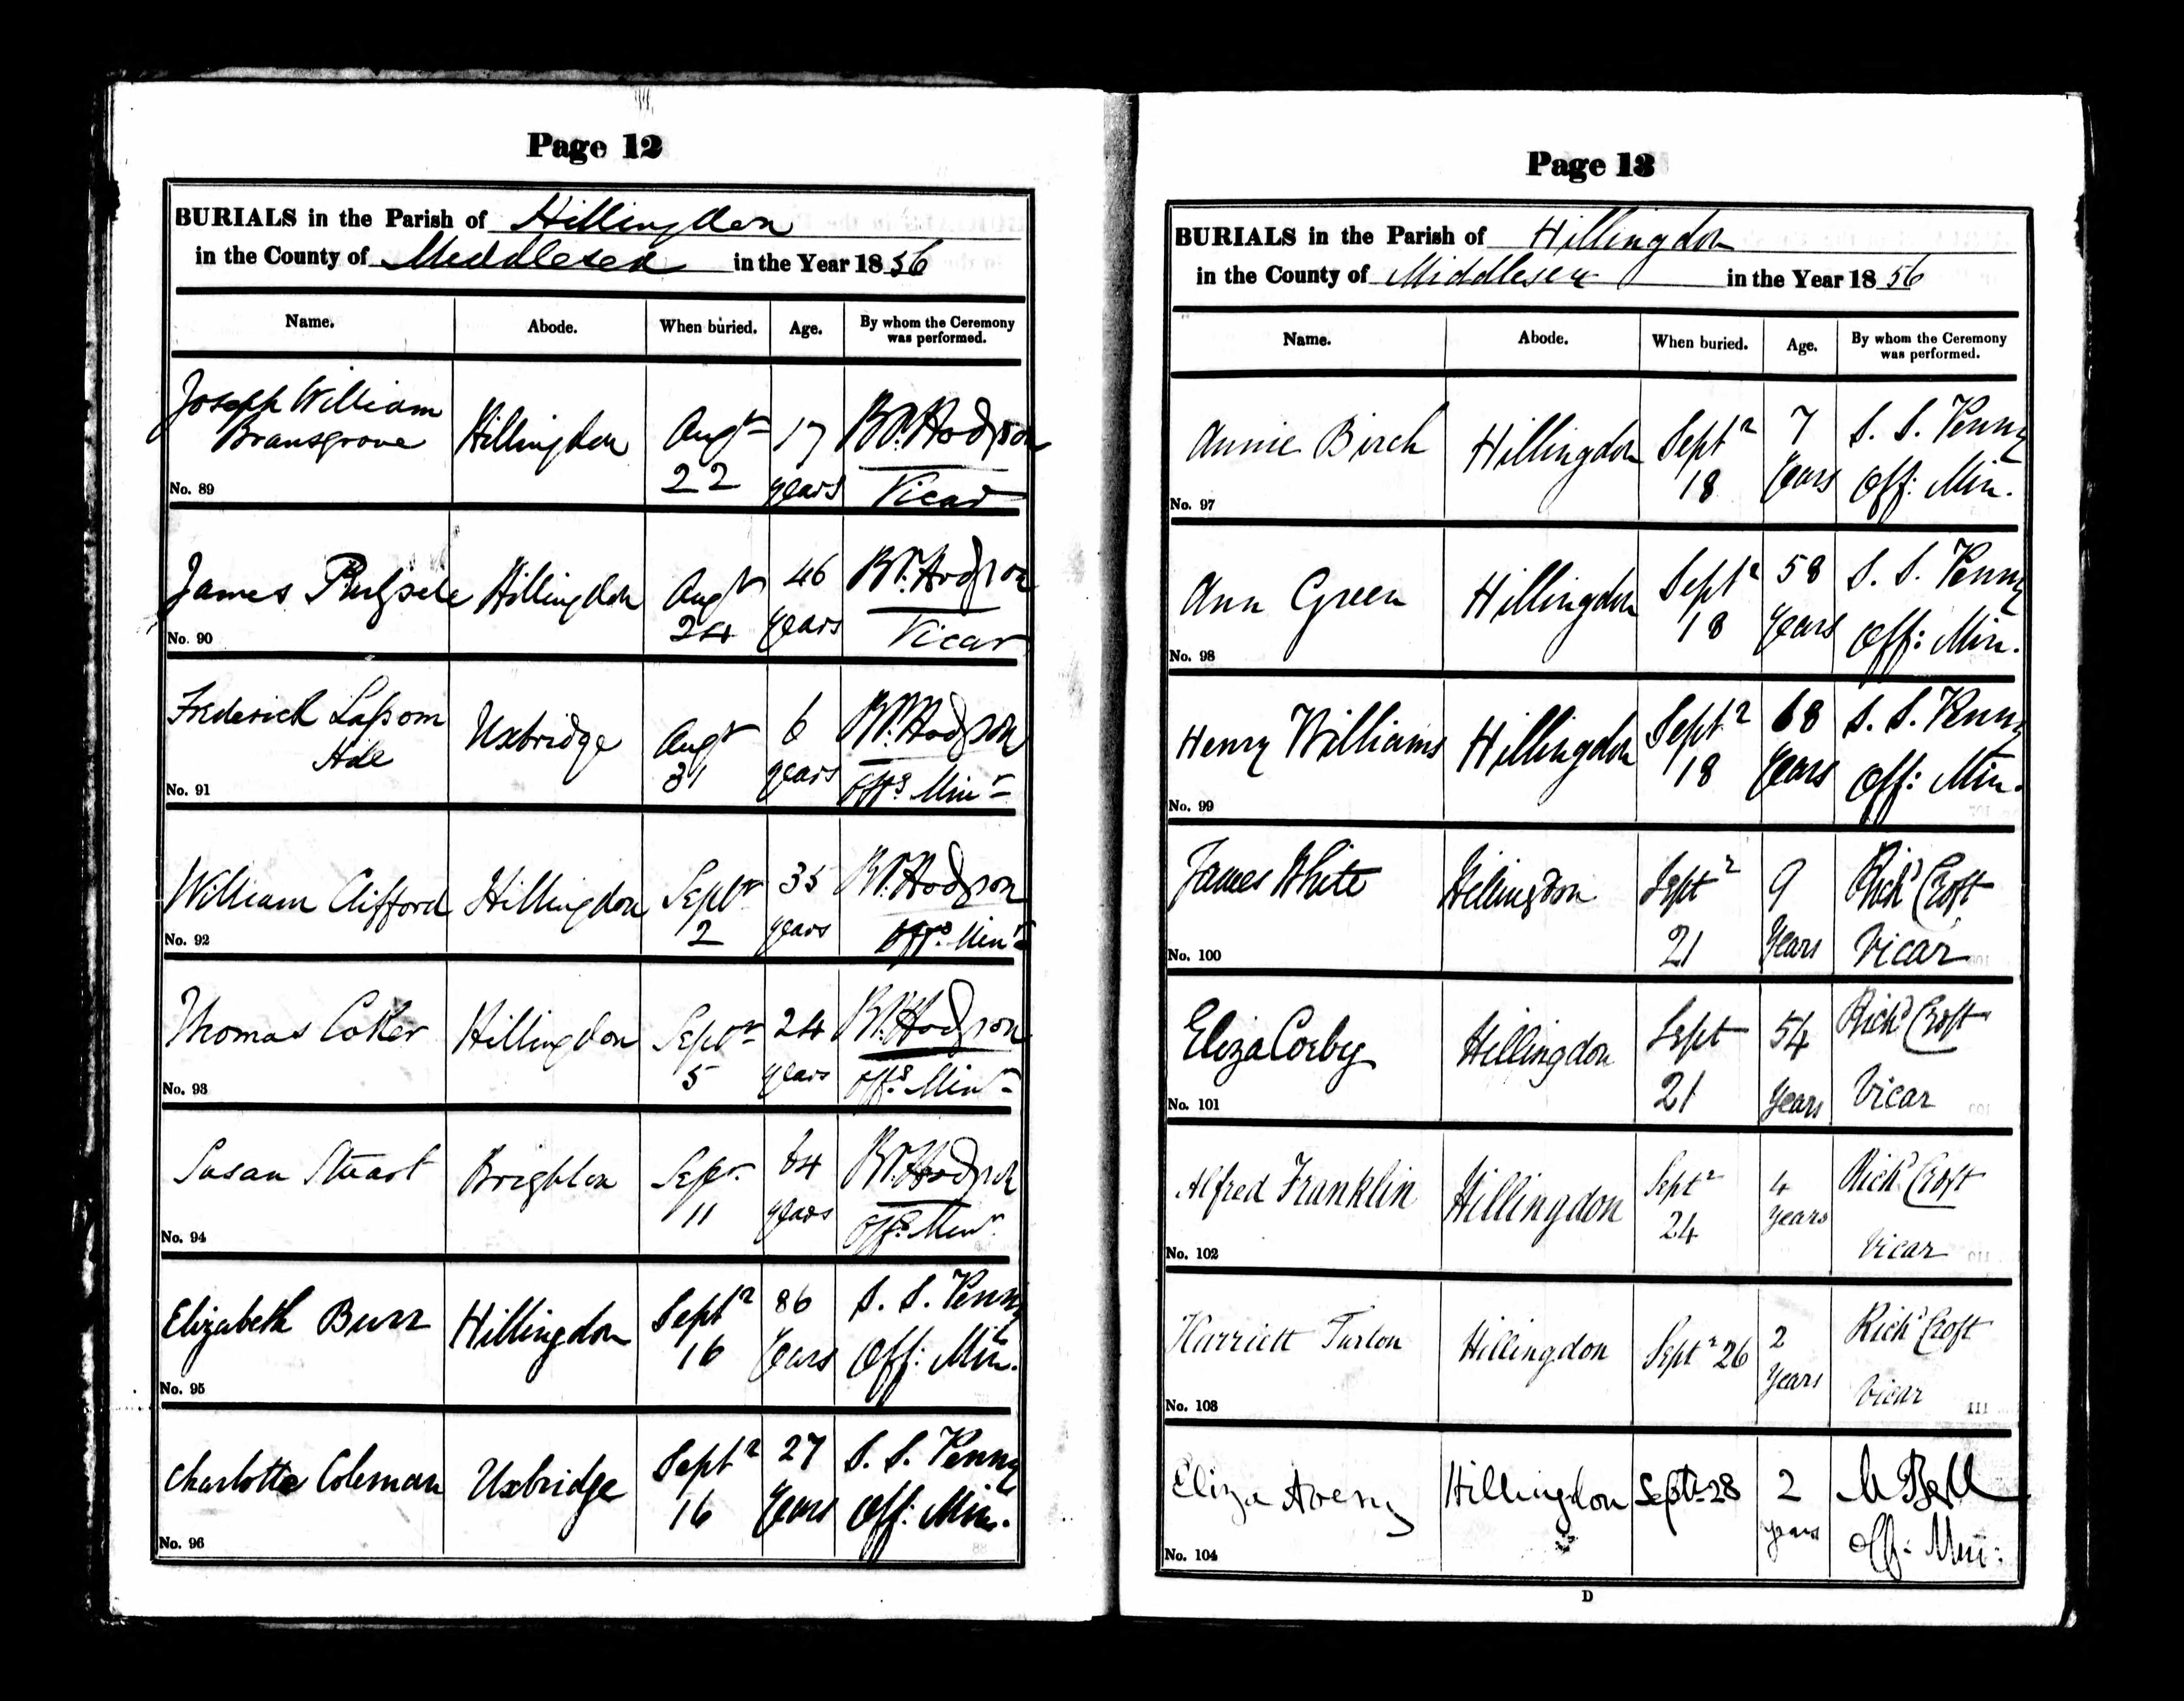 Page 12
BURIALS in the Parish of Hillingdon
in the County of Middlesex in the Year 1856
Name. Abode. When buried. Age. By whom the Ceremony was performed.
Joseph William Bransgrove Hillingdon Augt 22 17 years Hodgson Vicar
No. 89
James Hillingdon Augt 24 46 years Hodgson Vicar
No. 90
Frederick Uxbridge Augt 31 6 years Hodgson Offg Minr
No. 91
William Clifford Hillingdon Septr 2 35 years Hodgson Offg Minr
No. 92
Thomas Coker Hillingdon Septr 5 24 years Hodgson Offg Minr
No. 93
Susan Stuart Brighton Sepr 11 64 years Hodgson Offg Minr
No. 94
Elizabeth Burr Hillingdon Septr 16 86 Years S. S. Penny Off: Min.
No. 95
Charlotte Coleman Uxbridge Septr 16 27 Years S. S. Penny Off: Min.
No. 96
Page 13
BURIALS in the Parish of Hillingdon
in the County of Middlesex in the Year 1856
Name. Abode. When buried. Age. By whom the Ceremony was performed.
Annie Birch Hillingdon Septr 18 7 Years S. S. Penny Off: Min.
No. 97
Ann Green Hillingdon Septr 18 58 Years S. S. Penny Off: Min.
No. 98
Henry Williams Hillingdon Septr 18 68 Years S. S. Penny Off: Min.
No. 99
James White Hillingdon Septr 21 9 Years Richd Croft Vicar
No. 100
Eliza Corby Hillingdon Sept 21 54 Years Richd Croft Vicar
No. 101
Alfred Franklin Hillingdon Septr 24 4 Years Richd Croft Vicar
No. 102
Harriett Turton Hillingdon Septr 26 2 Years Richd Croft Vicar
No. 103
Eliza Avery Hillingdon Septr 28 2 years Bell Off: Min:
No. 104
D